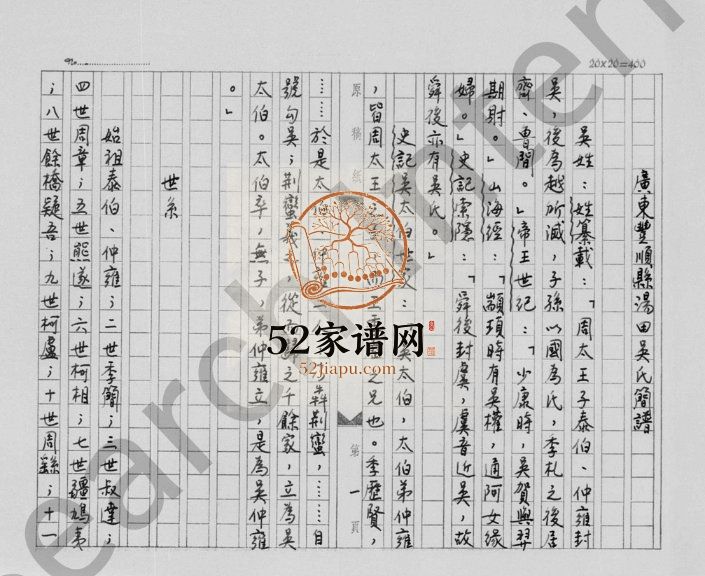 20×20=400
No.
廣東豐順縣湯田吳氏簡譜
吳姓：姓纂載：「周太王子泰伯、仲雍封
吳，後為越所滅，子孫以國為氏，季札之後居
齊、魯間。」帝王世紀：「少康時，吳賀與羿
期射。」山海經：「顓頊時有吳權，通阿女緣
婦。」史記索隱：「舜後封虞，虞音近吳，故
舜後亦有吳氏。」
史記吳太伯世家：吳太伯，太伯弟仲雍
，皆周太王之子，而王季歷之兄也。季歷賢，
……於是太伯、仲雍二 犇荊蠻，……自
號勾吳；荊蠻義之，從而歸之千餘家，立為吳
太伯。太伯卒，無子，弟仲雍立，是為吳仲雍
。」
世系
始祖泰伯、仲雍；二世季簡；三世叔達；
四世周章；五世熊遂；六世柯相；七世疆鳩夷
；八世餘橋疑吾；九世柯盧；十世周繇；十一
原稿紙
第一頁
52家谱网
52jiapu.com